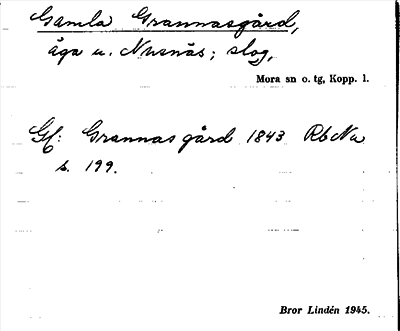 Gamla Grannasgård,
äga u. Nusnäs; slog,
Mora sn o. tg, Kopp. l.
Gf: Grannas gård 1843 RbNu
s. 199.
Bror Lindén 1945.